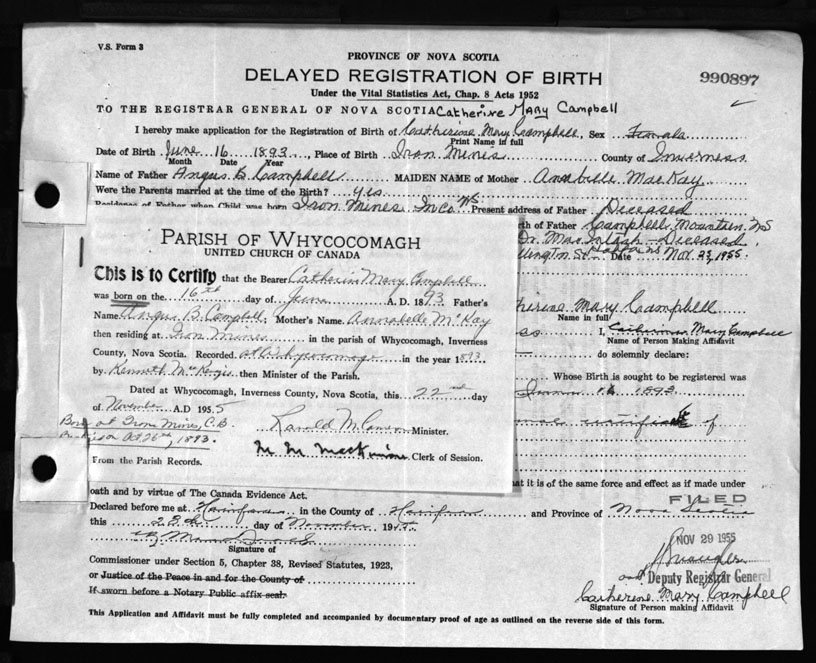 V.S. Form 3
PROVINCE OF NOVA SCOTIA
DELAYED REGISTRATION OF BIRTH
990897
Under the Vital Statistics Act, Chap. 8 Acts 1952
TO THE REGISTRAR GENERAL OF NOVA SCOTIA Catherine Mary Campbell
I hereby make application for the Registration of Birth of Catherine Mary Campbell, Sex Female
Print Name in full
Date of Birth June 16 1893, Place of Birth Iron Mines County of Inverness
Month Date Year
Name of Father Angus B. Campbell MAIDEN NAME of Mother Annabelle MacKay
Were the Parents married at the time of the Birth? Yes
Residence of Father when Child was born Iron Mines In Co NS Present address of Father Deceased
rth of Father Campbell Mountain, NS
Dr. MacIntosh - Deceased
llington St. Date Nov. 23, 1955.
PARISH OF WHYCOCOMAGH
UNITED CHURCH OF CANADA
This is to Certify that the Bearer Catherine Mary Campbell
was born on the 16th day of June A. D. 1893. Father's
Name Angus B. Campbell Mother's Name Annabelle McKay
then residing at Iron Mines in the parish of Whycocomagh, Inverness
County, Nova Scotia. Recorded at Whycocomagh in the year 1893
by Kenneth McKenzie then Minister of the Parish.
Dated at Whycocomagh, Inverness County, Nova Scotia, this 22nd day
of November A.D 1955
Born at Iron Mines, C.B.
1893.
Minister.
M. M. MacKinnon Clerk of Session.
From the Parish Records.
therine Mary Campbell
Name in full
I, Catherine Mary Campbell
Name of Person Making Affidavit
do solemnly declare:
Whose Birth is sought to be registered was
June 16 1893
certificate of
at it is of the same force and effect as if made under
oath and by virtue of The Canada Evidence Act.
FILED
Declared before me at in the County of and Province of Nova Scotia
this 28th day of November 1955.
Signature of
NOV 29 1955
Commissioner under Section 5, Chapter 38, Revised Statutes, 1923,
or Justice of the Peace in and for the County of
Deputy Registrar General
If sworn before a Notary Public affix seal.
Catherine Mary Campbell
Signature of Person making Affidavit
This Application and Affidavit must be fully completed and accompanied by documentary proof of age as outlined on the reverse side of this form.